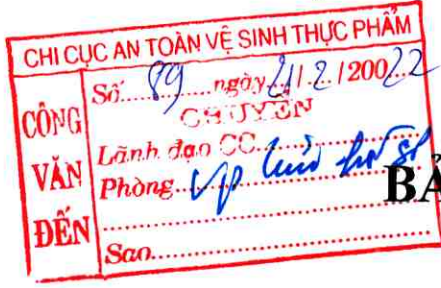 CHI CỤC AN TOÀN VỆ SINH THỰC PHẨM
CÔNG VĂN ĐẾN
Số 89 ngày 21/2/20022
CHUYỂN
Lãnh đạo CC
Phòng VP lưu hồ sơ
Sao
BẢ